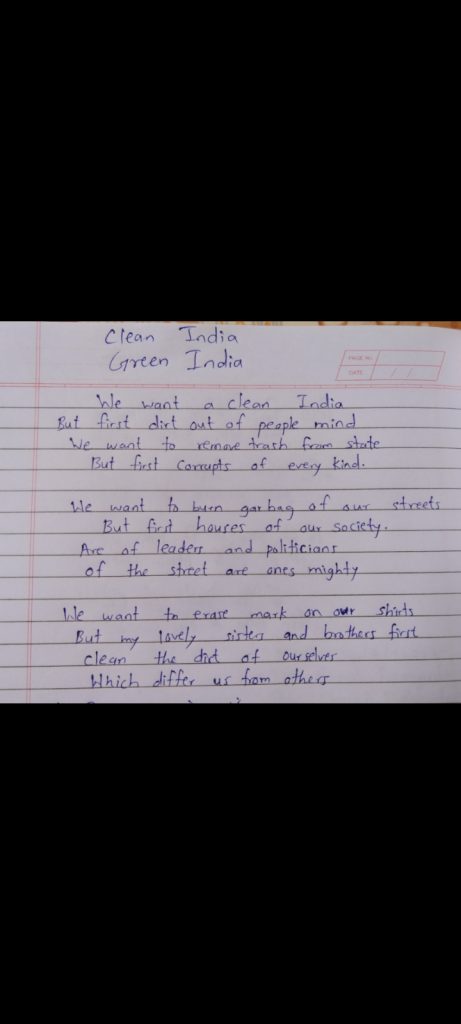 Clean India
Green India
PAGE No.
DATE
We want a clean India
But first dirt out of people mind
We want to remove trash from state
But first Corrupts of every kind.
We want to burn garbag of our streets
But first houses of our society.
Are of leaders and politicians
of the street are ones mighty
We want to erase mark on our shirts
But my lovely sisters and brothers first
clean the dirt of ourselves
Which differ us from others